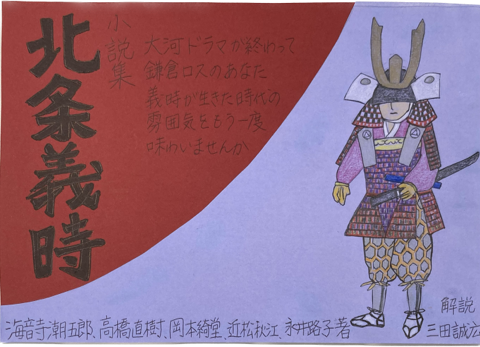 小説集
北条義時
大河ドラマが終わって
鎌倉ロスのあなた
義時が生きた時代の
雰囲気をもう一度
味わいませんか
解説
三田誠広
海音寺潮五郎、高橋直樹、岡本綺堂、近松秋江、永井路子著